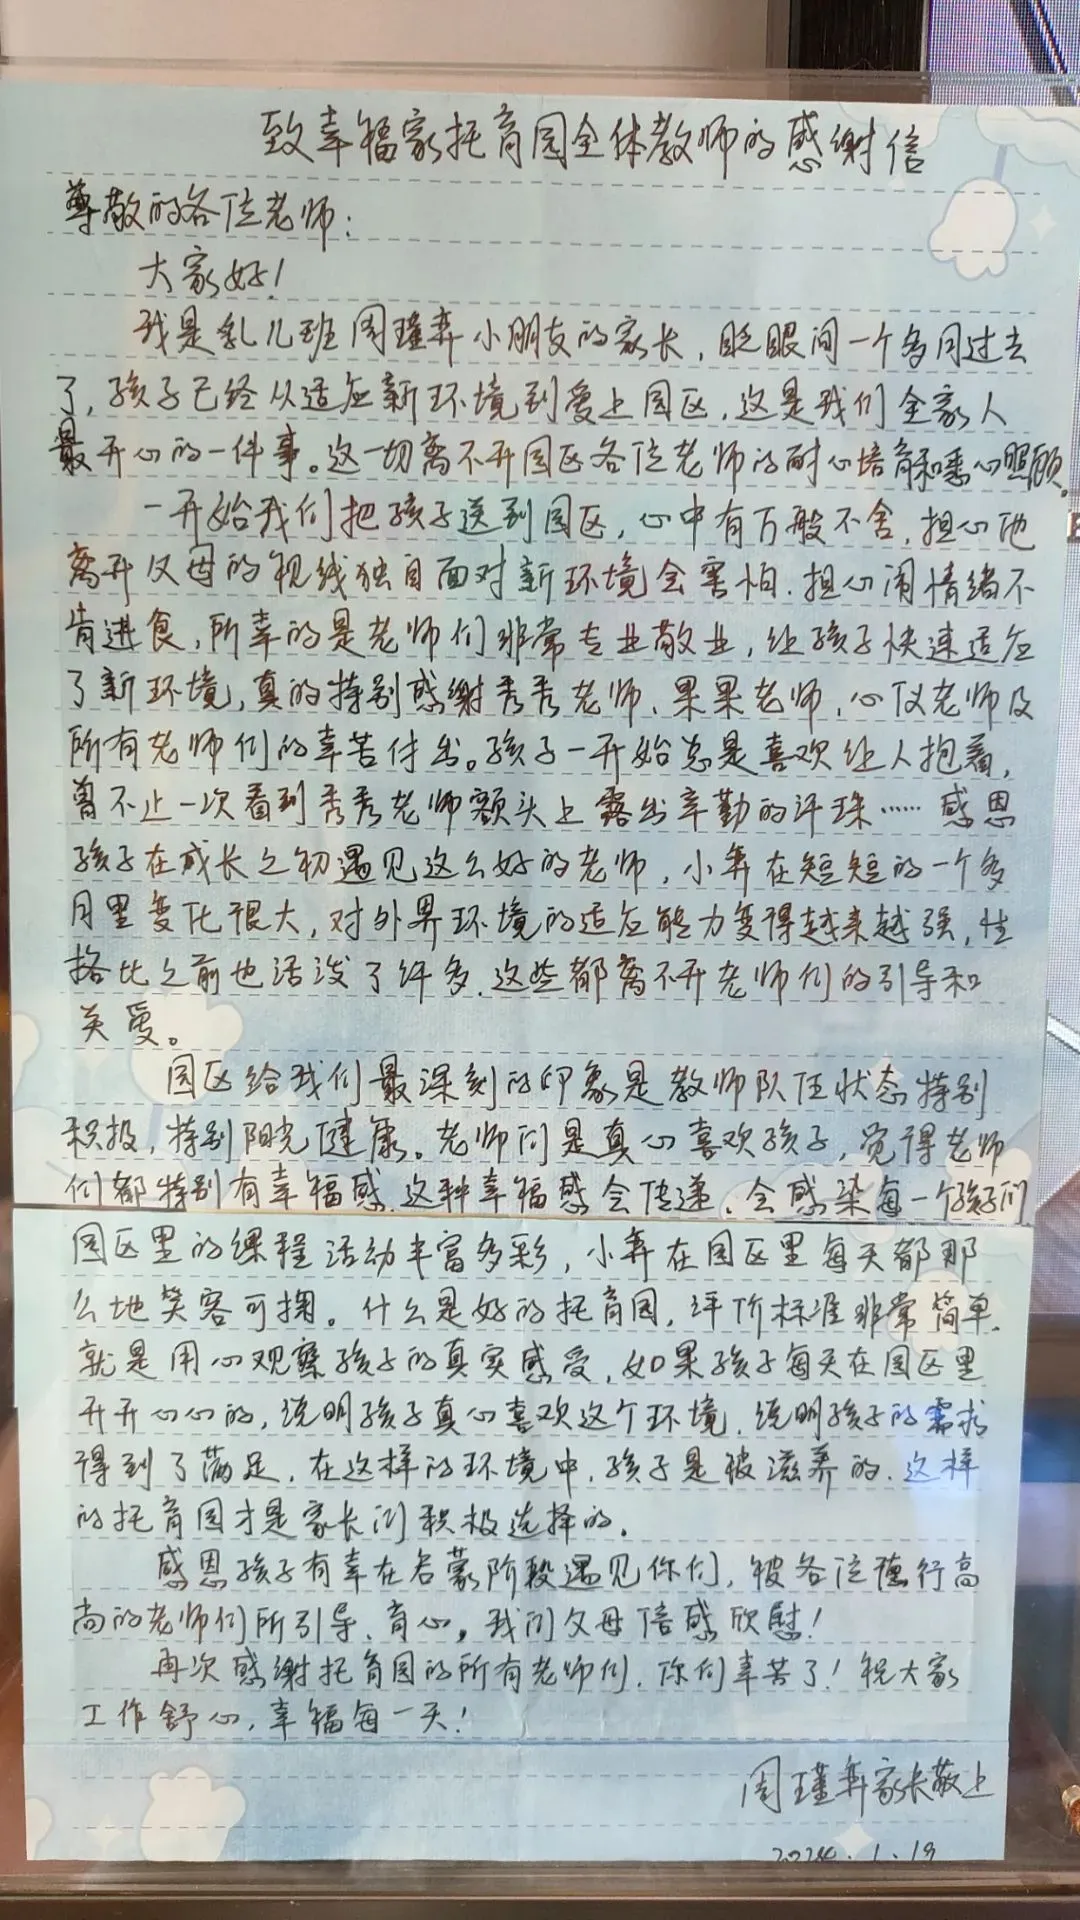 致幸福家托育园全体教师的感谢信
尊敬的各位老师:
大家好!
我是乳儿班周瑾弈小朋友的家长,眨眼间一个多月过去
了,孩子已经从适应新环境到爱上园区,这是我们全家人
最开心的一件事。这一切离不开园区各位老师的耐心培育和悉心照顾。
一开始我们把孩子送到园区,心中有万般不舍,担心他
离开父母的视线独自面对新环境会害怕.担心闹情绪不
肯进食,所幸的是老师们非常专业敬业,让孩子快速适应
了新环境,真的特别感谢秀秀老师、果果老师,心仪老师及
所有老师们的辛苦付出。孩子一开始总是喜欢让人抱着,
曾不止一次看到秀秀老师额头上露出辛勤的汗珠……感恩
孩子在成长之初遇见这么好的老师,小弈在短短的一个多
月里变化很大,对外界环境的适应能力变得越来越强,性
格比之前也活泼了许多.这些都离不开老师们的引导和
关爱。
园区给我们最深刻的印象是教师队伍状态特别
积极,特别阳光健康。老师们是真心喜欢孩子,觉得老师
们都特别有幸福感.这种幸福感会传递、会感染每一个孩子们
园区里的课程活动丰富多彩,小弈在园区里每天都那
么地笑容可掬。什么是好的托育园,评价标准非常简单.
就是用心观察孩子的真实感受,如果孩子每天在园区里
开开心心的,说明孩子真心喜欢这个环境.说明孩子的需求
得到了满足.在这样的环境中,孩子是被滋养的.这样
的托育园才是家长们积极选择的。
感恩孩子有幸在启蒙阶段遇见你们,被各位德行高
尚的老师们所引导、育心。我们父母倍感欣慰!
再次感谢托育园的所有老师们.你们辛苦了!祝大家
工作舒心,幸福每一天!
周瑾弈家长敬上
2024.1.19